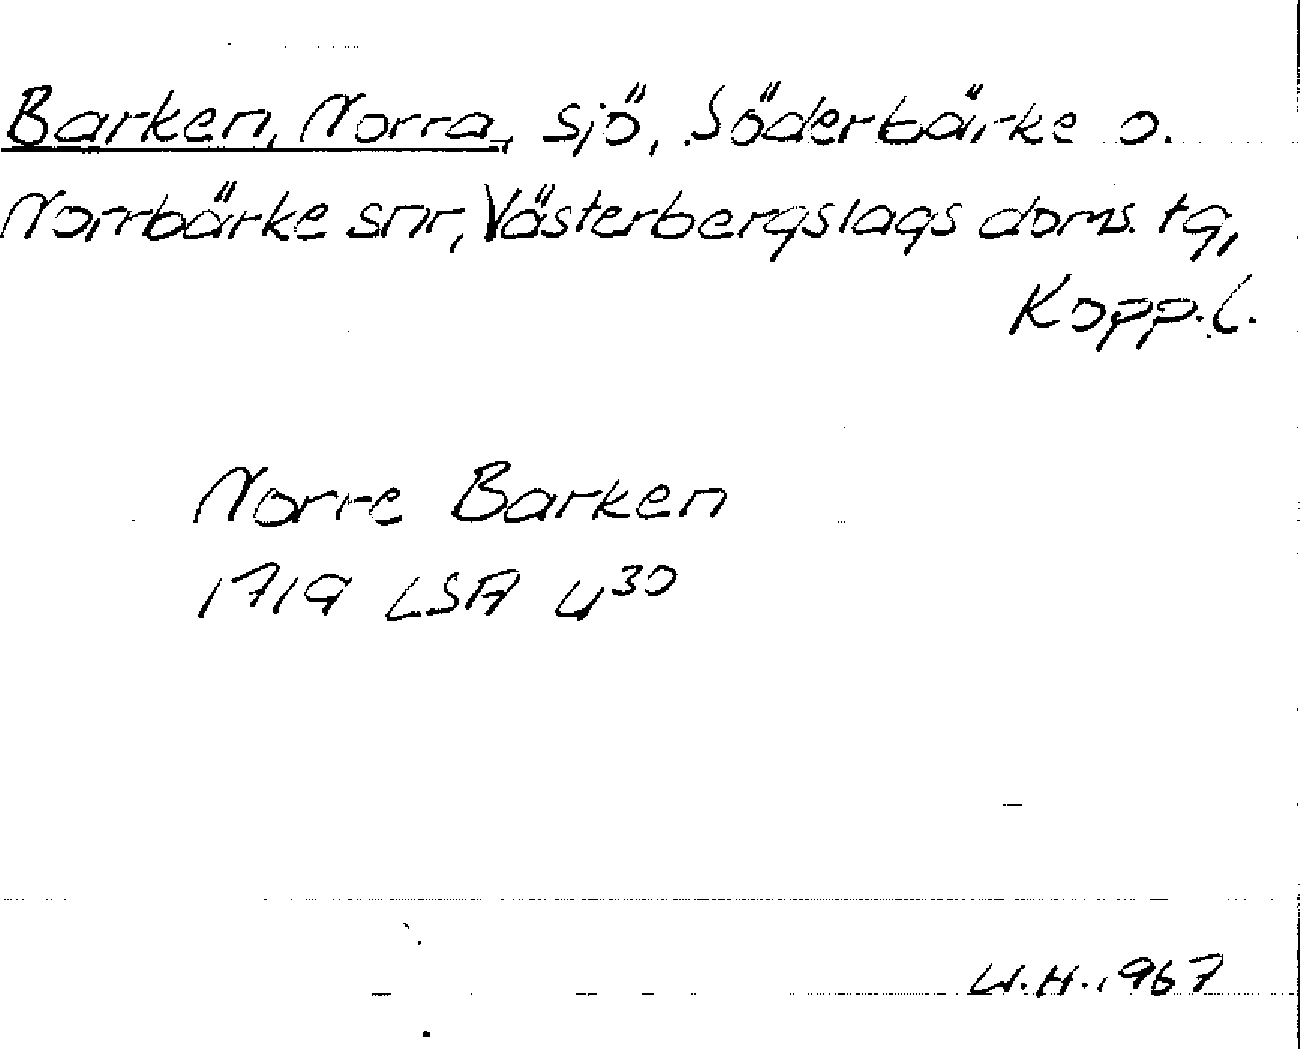 Barken, Norra, sjö, Söderbärke o.
Norrbärke snr, Västerbergslags doms. tg,
Kopp. l.
Norre Barken
1719 LSA U³⁰
W.H. 1967